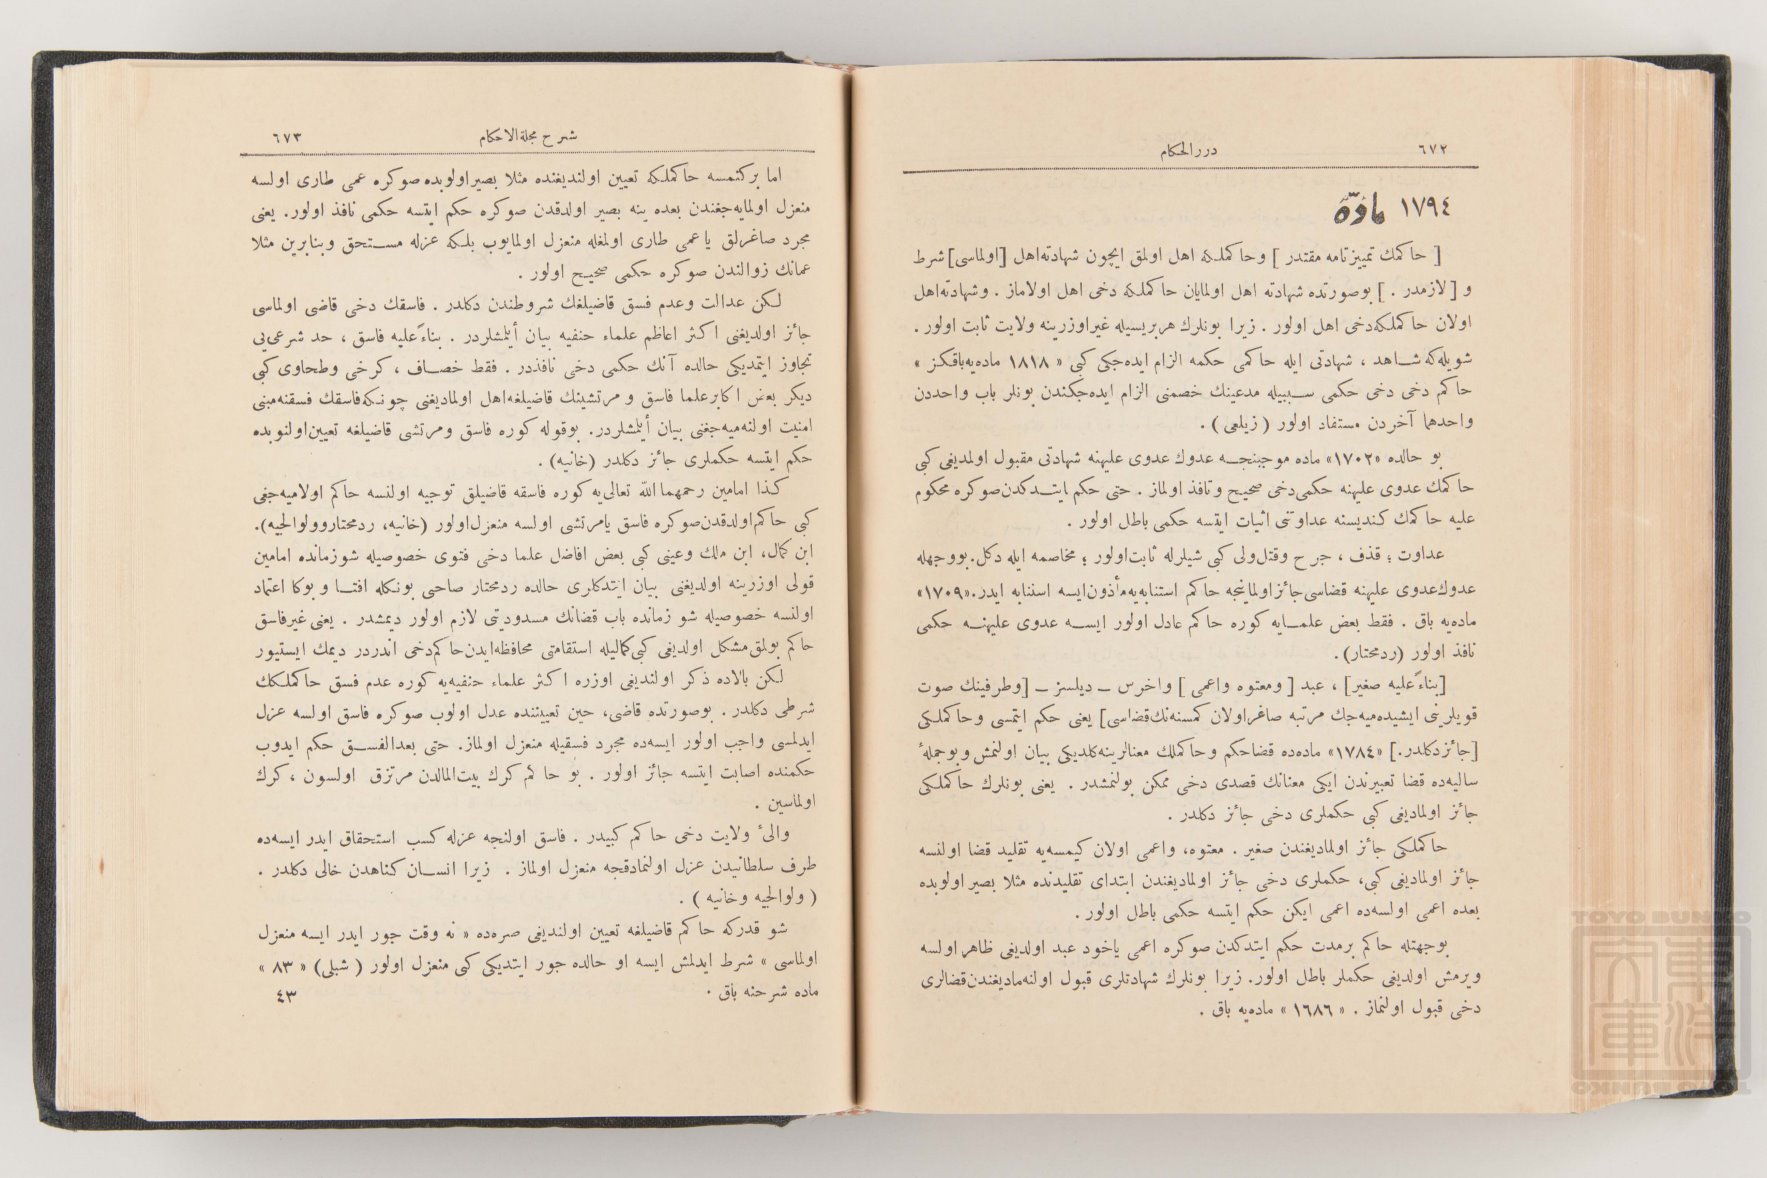 ٦٧٢
دررالحكام
١٧٩٤ مادّه
[ حاكمك تمييزتامه مقتدر ] وحاكملكه اهل اولمق ايچون شهادته‌اهل [اولماسى] شرط
و [ لازمدر . ] بوصورتده شهادته اهل اولمايان حاكملكه دخى اهل اولاماز . وشهادته‌اهل
اولان حاكملكه‌دخى اهل اولور . زيرا بونلرك هربريسيله غيراوزرينه ولايت ثابت اولور .
شويله‌كه شـاهد ، شهادتى ايله حاكمى حكمه الزام ايده‌جكى كبى « ١٨١٨ ماده‌يه‌باقكز »
حاكم دخى دخى حكمى سـببيله مدعينك خصمنى الزام ايده‌جكندن بونلر باب واحددن
واحدهما آخردن مستفاد اولور ( زيلعى ) .
بو حالده «١٧٠٢» ماده موجبنجـه عدوك عدوى عليهنه شهادتى مقبول اولمديغى كبى
حاكمك عدوى عليهنه حكمى‌دخى صحيح ونافذ اولماز . حتى حكم ايتـدكدن‌صوكره محكوم
عليه حاكمك كنديسنه عداوتنى اثبات ايتسه حكمى باطل اولور .
عداوت ؛ قذف ، جرح وقتل‌ولى كبى شيلرله ثابت‌اولور ؛ مخاصمه ايله دكل.بووجهله
عدوك‌عدوى عليهنه قضاسى‌جائزاولمايجه حاكم استنابه‌يه‌مأذون‌ايسه استنابه ايدر.«١٧٠٩»
ماده‌يه باق . فقط بعض علمـايه كوره حاكم عادل اولور ايسـه عدوى عليهنـه حكمى
نافذ اولور (ردمحتار) .
[بناءًعليه صغير] ، عبد [ ومعتوه واعمى ] واخرس ــ ديلسز ــ [وطرفينك صوت
قويلرينى ايشيده‌ميه‌جك مرتبه صاغراولان كمسنه‌نك‌قضاسى] يعنى حكم ايتمسى وحاكملكى
[جائزدكلدر.] «١٧٨٤» ماده‌ده قضاحكم وحاكملك معنالرينه‌كلديكى بيان اولنمش‌وبوجملۀ
ساليه‌ده قضا تعبيرندن ايكى معنانك قصدى دخى ممكن بولنمشدر . يعنى بونلرك حاكملكى
جائز اولماديغى كبى حكملرى دخى جائز دكلدر .
حاكملكى جائز اولماديغندن صغير . معتوه، واعمى اولان كيمسه‌يه تقليد قضا اولنسه
جائز اولماديغى كبى، حكملرى دخى جائز اولماديغندن ابتداى تقليدنده مثلا بصيراولوبده
بعده اعمى اولسه‌ده اعمى ايكن حكم ايتسه حكمى باطل اولور .
بوجهتله حاكم برمدت حكم ايتدكدن صوكره اعمى ياخود عبد اولديغى ظاهراولسه
ويرمش اولديغى حكملر باطل اولور. زيرا بونلرك شهادتلرى قبول اولنه‌ماديغندن‌قضالرى
دخى قبول اولنماز . « ١٦٨٦ » ماده‌يه باق .
شرح مجلةالاحكام
٦٧٣
اما بركمسه حاكملكه تعيين اولنديغنده مثلا بصيراولوبده‌صوكره عمى طارى اولسه
منعزل اولمايه‌جغندن بعده ينه بصير اولدقدن صوكره حكم ايتسه حكمى نافذ اولور. يعنى
مجرد صاغرلق ياعمى طارى اولمغله منعزل اولمايوب بلكه عزله مسـتحق وبنابرين مثلا
عمانك زوالندن صوكره حكمى صحيح اولور .
لـكن عدالت وعدم فسق قاضيلغك شروطندن دكلدر . فاسقك دخى قاضى اولماسى
جائز اولديغنى اكثر اعاظم علماء حنفيه بيان أيلمشلردر . بناءًعليه فاسق ، حد شرعى‌يى
تجاوز ايتمديكى حالده آنك حكمى دخى نافذدر . فقط خصـاف ، كرخى وطحاوى كبى
ديكر بعض اكابرعلما فاسق و مرتشينك قاضيلغه‌اهل اولماديغنى چونكه‌فاسقك فسقنه‌مبنى
امنيت اولنه‌ميه‌جغنى بيان أيلمشلردر. بوقوله كوره فاسق ومرتشى قاضيلغه تعيين‌اولنوبده
حكم ايتسه حكملرى جائز دكلدر (خانيه) .
كـذا امامين رحمهماالله تعالى‌يه كوره فاسقه قاضيلق توجيه اولنسه حاكم اولاميه‌جغى
كبى حاكم‌اولدقدن‌صوكره فاسق يامرتشى اولسه منعزل‌اولور (خانيه، ردمختاروولوالجيه).
ابن كمال، ابن ملك وعينى كبى بعض افاضل علما دخى فتوى خصوصيله شوزمانده امامين
قولى اوزرينه اولديغنى بيان ايتدكلرى حالده ردمختار صاحبى بونكله افتـا و بوكا اعتماد
اولنسه خصوصيله شو زمانده باب قضانك مسدوديتى لازم اولور ديمشدر . يعنى غيرفاسق
حاكم بولمق‌مشكل اولديغى كبى‌كماليله استقامتى محافظه‌ايدن‌حاكم‌دخى اندردر ديمك ايستيور
لـكن بالاده ذكر اولنديغى اوزره اكثر علماء حنفيه‌يه كوره عدم فسق حاكملكك
شرطى دكلدر . بوصورتده قاضى، حين تعييننده عدل اولوب صوكره فاسق اولسه عزل
ايدلمسى واجب اولور ايسه‌ده مجرد فسقيله منعزل اولماز. حتى بعدالفسـق حكم ايدوب
حكمنده اصابت ايتسه جائز اولور . بو حاكم كرك بيت‌المالدن مرتزق اولسون ، كرك
اولماسين .
والىء ولايت دخى حاكم كبيدر . فاسق اولنجه عزله كسب استحقاق ايدر ايسه‌ده
طرف سلطانيدن عزل اولنمادقجه منعزل اولماز . زيرا انسـان كناهدن خالى دكلدر .
( ولوالجيه وخانيه ) .
شو قدركه حاكم قاضيلغه تعيين اولنديغى صره‌ده « نه وقت جور ايدر ايسه منعزل
اولماسى » شرط ايدلمش ايسه او حالده جور ايتديكى كبى منعزل اولور ( شبلى) « ٨٣ »
ماده شرحنه باق .
٤٣
TOYO BUNKO
東洋文庫
TOYO BUNKO